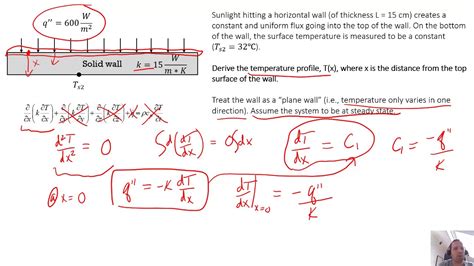 q″ = 600 W/m²
Solid wall k = 15 W/m∗K
T_s2
Sunlight hitting a horizontal wall (of thickness L = 15 cm) creates
a constant and uniform flux going into the top of the wall. On the bottom
of the wall, the surface temperature is measured to be a constant
(T_s2 = 32°C).
Derive the temperature profile, T(x), where x is the distance from the top
surface of the wall.
Treat the wall as a "plane wall" (i.e., temperature only varies in one
direction). Assume the system to be at steady state.
x
∂/∂x (k ∂T/∂x) + ∂/∂y (k ∂T/∂y) + ∂/∂z (k ∂T/∂z)
d²T/dx² = 0 ∫d(dT/dx) = 0∫dx dT/dx = C₁ C₁ = -q″/K
@ x=0 q″ = -K dT/dx dT/dx|x=0 = -q″/K